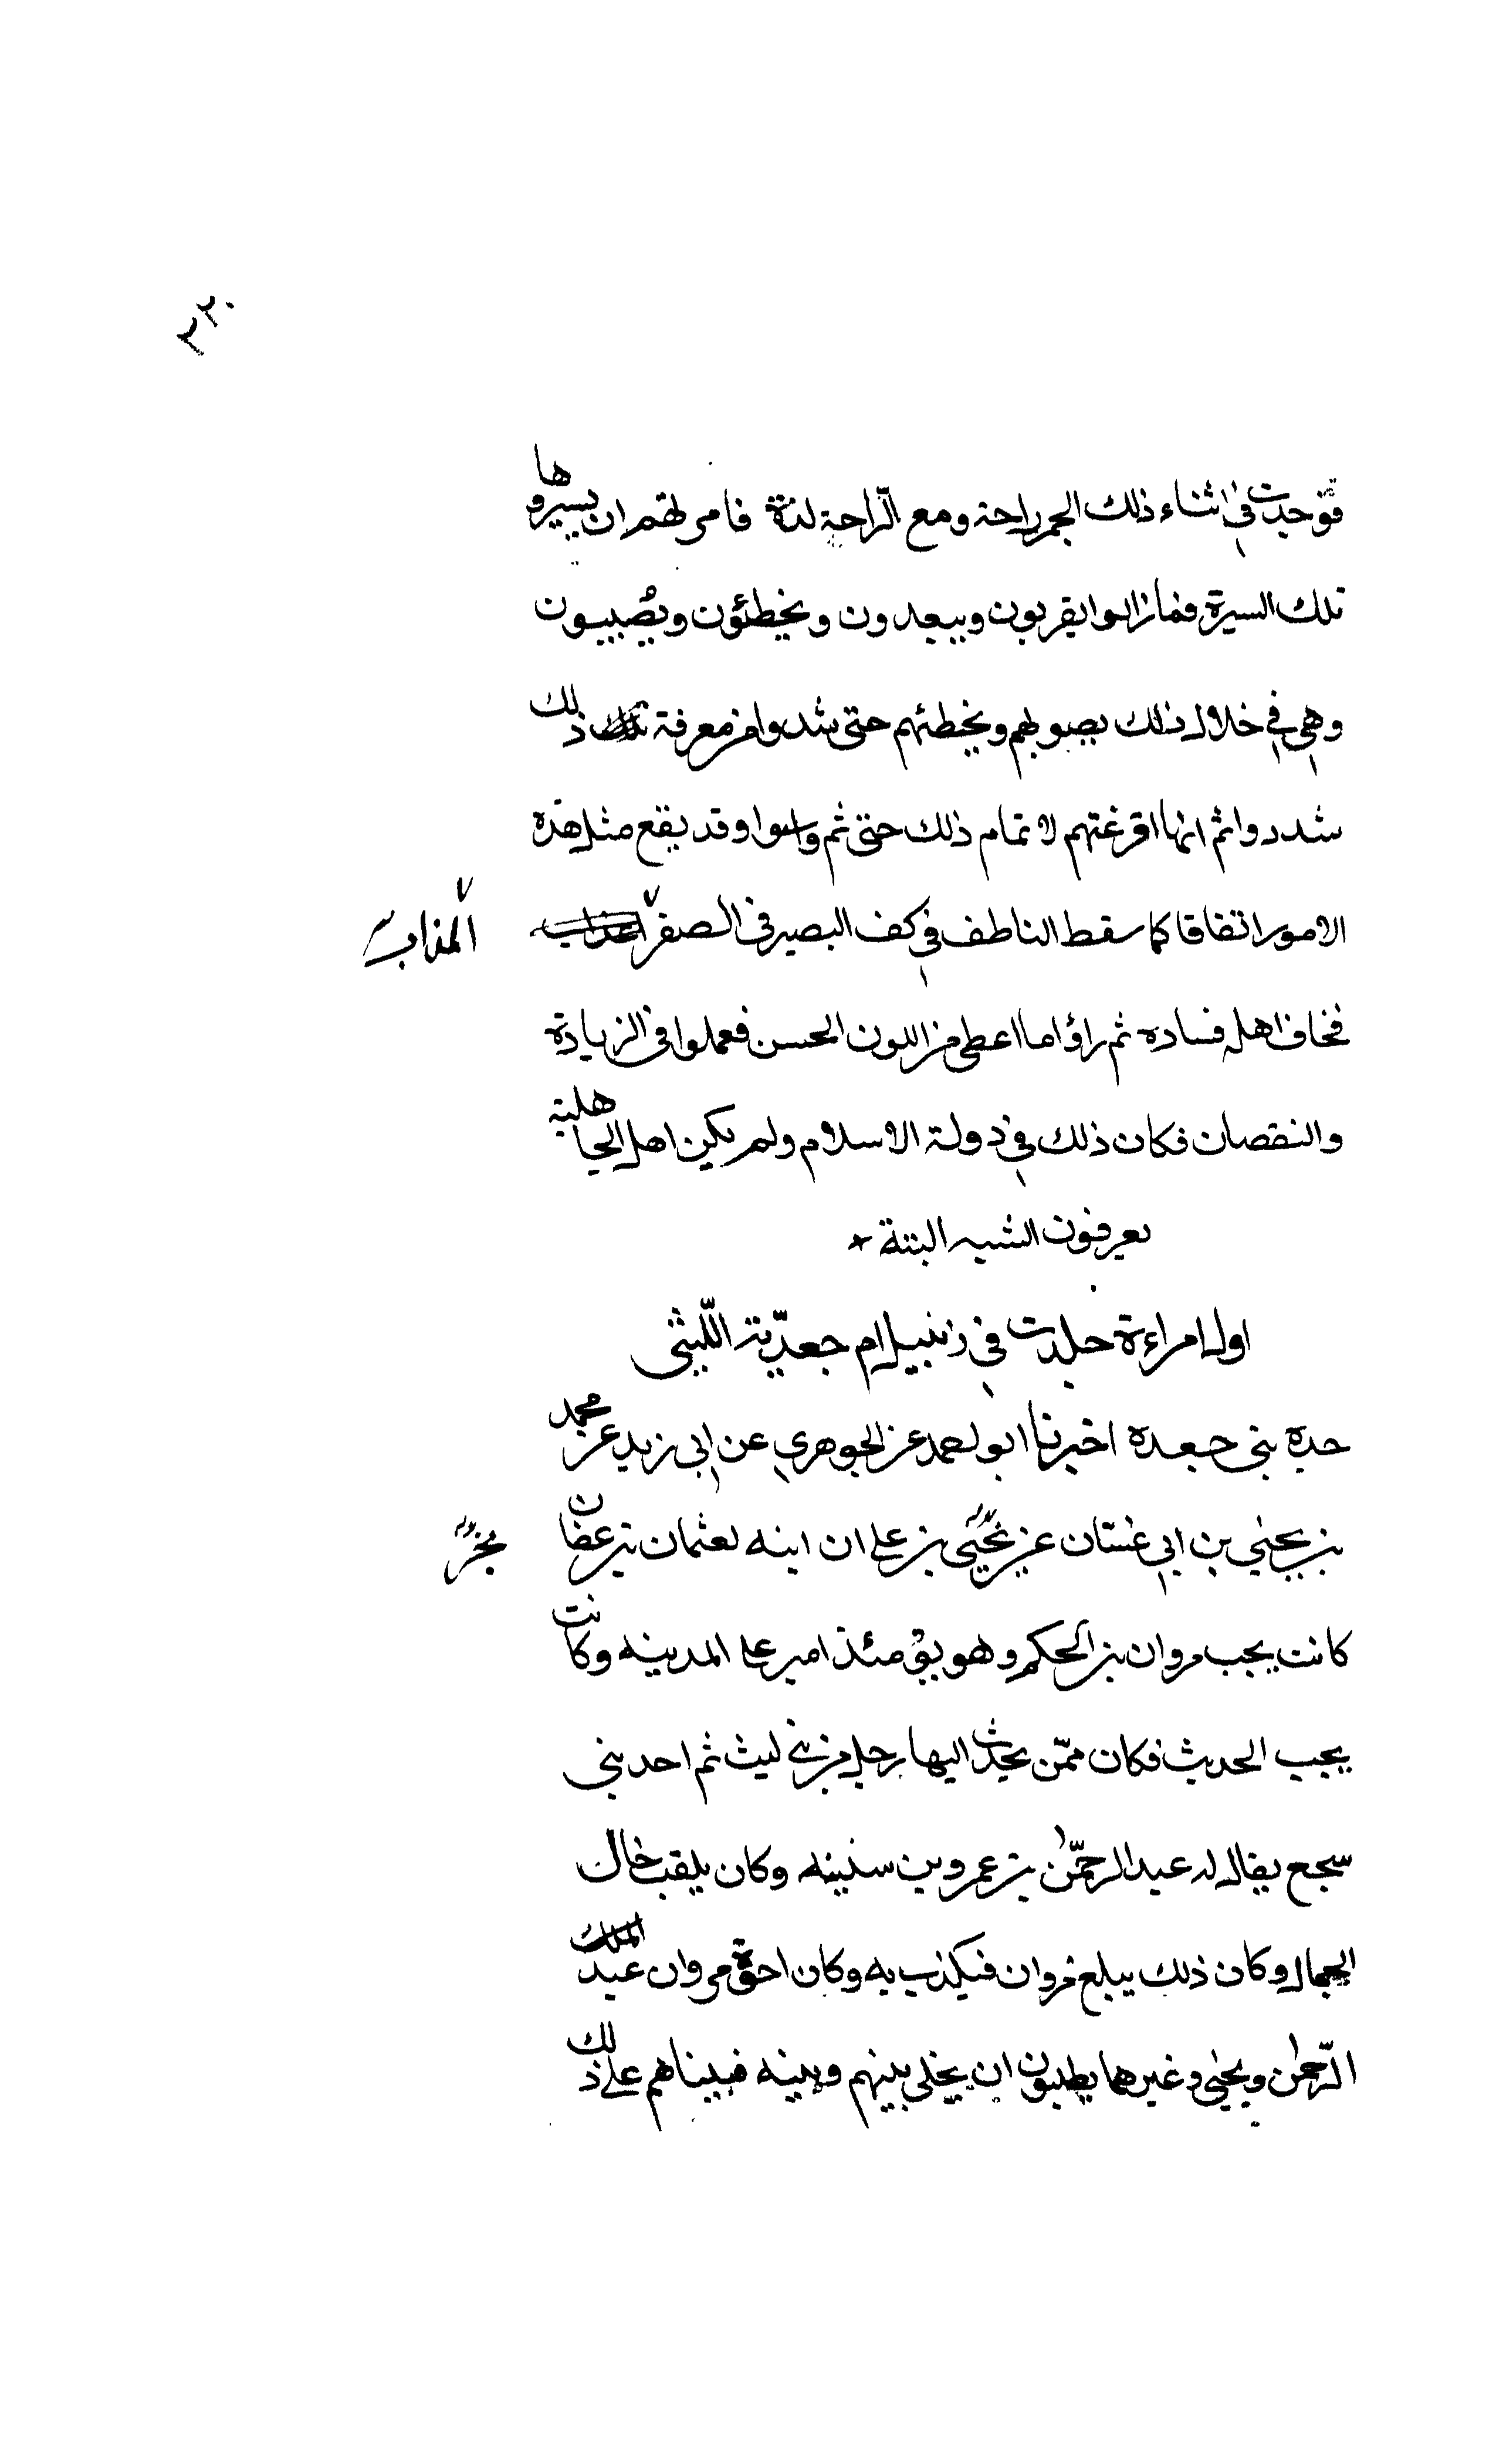 ٣٢٠
فوجدت في اثناء ذلك الجم راحة ومع الراحة لذة فامرتهم ان يسيروها
تلك السيرة فما زالوا يقربون ويبعدون ويخطئون ويصيبون
وهي في خلال ذلك يصوبهم ويخطئهم حتى شدوا من معرفة ذلك
شدوا ثم انها افرغتهم لاتمام ذلك حتى ثم واسوا وقد يقع مثل هذه
الامور اتفاقا كما سقط الناطف في كف البصير في الصفر
المذاب
فخاف اهله فساده ثم راؤا ما اعطى من اللون الحسن فعملوا في الزيادة
والنقصان فكان ذلك في دولة الاسلام ولم يكن اهل الجاهلية
يعرفون الشبه البتة *
اول امراءة جلدت في زنبيل ام جعدية الليثي
جدة بني جعدة اخبرنا ابو احمد عن الجوهري عن ابي زيد عن محمد
بن يحيى بن ابي غسان عن يحيى بن علي ان ابنه لعثمان بن عفان
كانت يحب مروان بن الحكم وهو يومئذ امير على المدينه وكانت
يحب الحديث فكان ممن يحدث اليها رجل من بني ليث ثم احد بني
سجع يقال له عبد الرحمن بن عمرو بن سنينه وكان يلقب خال
الجمال وكان ذلك يبلغ مروان فيكذب به وكان اخوة مروان عبد
الرحمن ويحيى وغيرهما يطلبون ان يخلي بينهم وبينه فبيناهم على ذلك